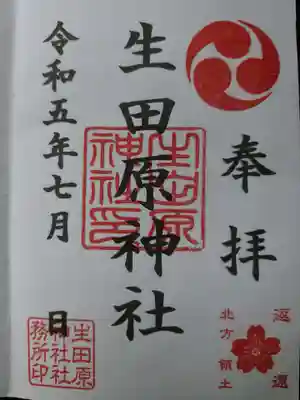 奉拝
生田原神社
生田原神社印
令和五年七月 日
生田原神社社務所印
北方領土
返還